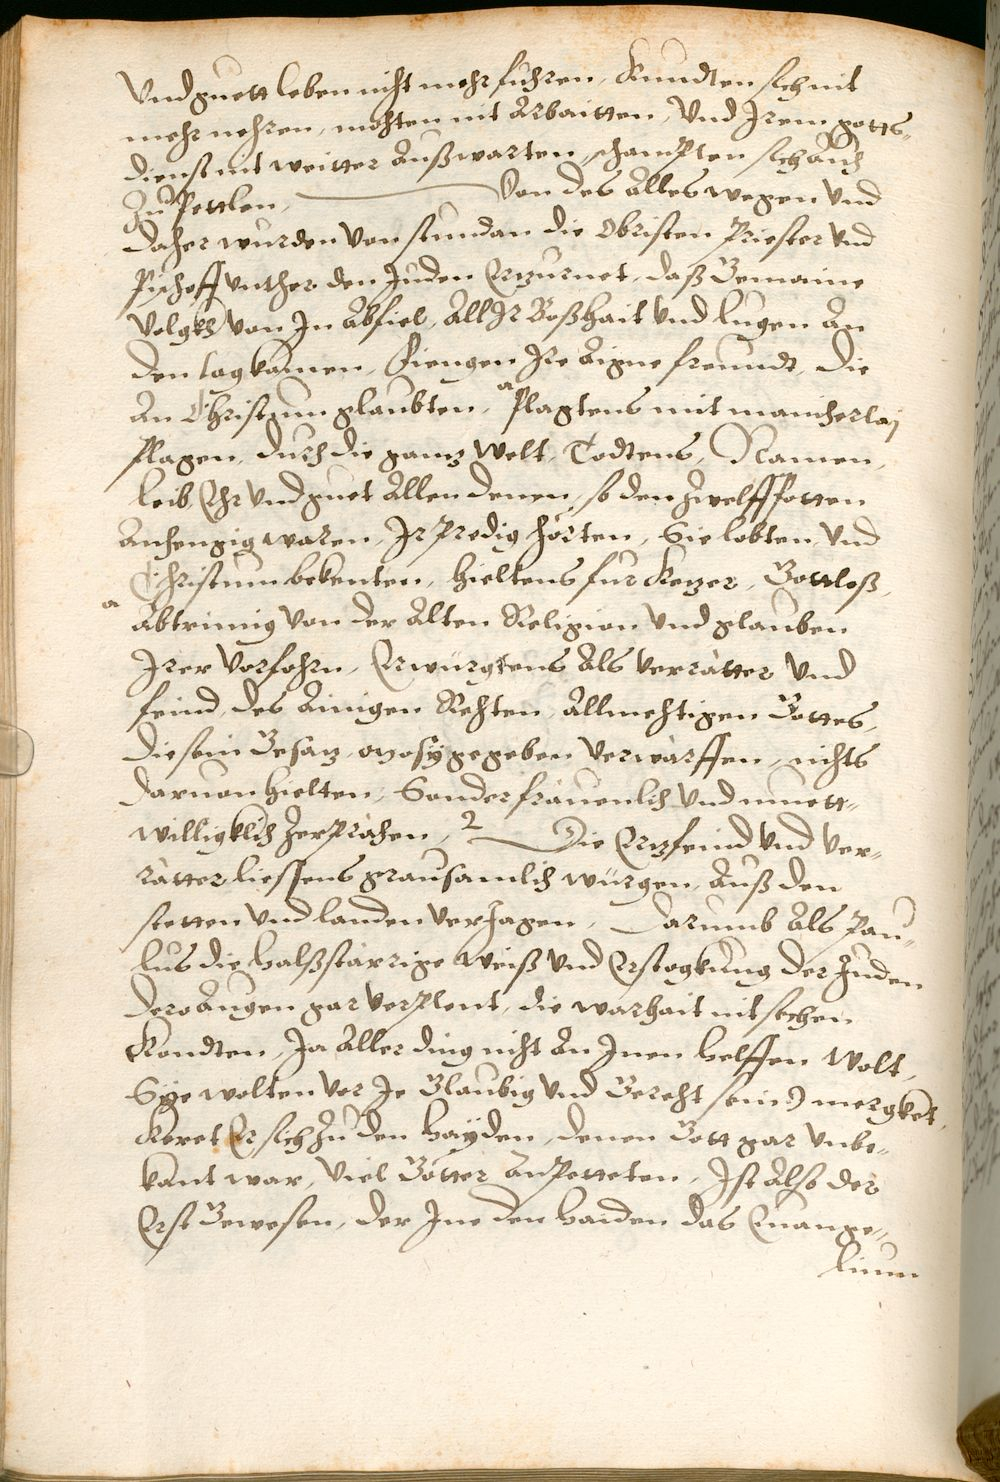 Vnd guett leben nicht mehr fuhren, Kundten sich nit
mehr nehren, mohten nit Arbaitten, Vnd Irem gotts-
dienst nit weitter Außwarten, schampten sich Auch
Zu Pettlen, Von des Alles wegen Vnd
daher wurden von stundan die Obristen Priester vnd
Pischoff vnther den Juden Erzurnet, daß Gemaine
Volgkh von In Abfiel, All Ir Boßhait Vnd lugen An
den tag kamen, Fiengen Ire Aigne freundt, die
An Christum glaubten, a Plagtens mit mancherlaj
Plagen, durch die ganz Welt, Todtens, Namen,
leib, Ehr Vnd guet Allen denen, so den Zwelffpotten
Anhengig waren, Ir Predig horten, Sie lobten, Vnd
Christum bekenten, hieltens fur Kezer, Gottloß,
a Abtrinnig Von der Alten Religion Vnd glauben
Irer Vorfohrn, Erwürgtens Als verrätter Vnd
feind, des Ainigen Rehten, Allmehtigen Gottes,
die sein Gesaz, Mosy gegeben Verwarffen, nichts
daruon hielten, Sonder frauenlich Vnd muett-
willigklich Zerprachen, 2 Die Erzfeind Vnd Ver-
rätter liessens grausamlich würgen, Auß den
stetten Vnd landen Verjagen, Darumb Als Pau-
lus die halßstarrige weiß Vnd Erstogkung der Juden
dero Augen gar Verplent, die warhait nit sechen
Kondten, Ja Aller ding nicht An Inen helffen Wolt,
Sye wolten Vor Je Glaubig Vnd Gereht sein) mergket,
Keret Er sich Zu den hayden, denen Gott gar Vnbe-
kant war, Viel Götter Anpetteten, Ist Also der
Erst Gewesen, der Inn den haiden das Euange-
lium